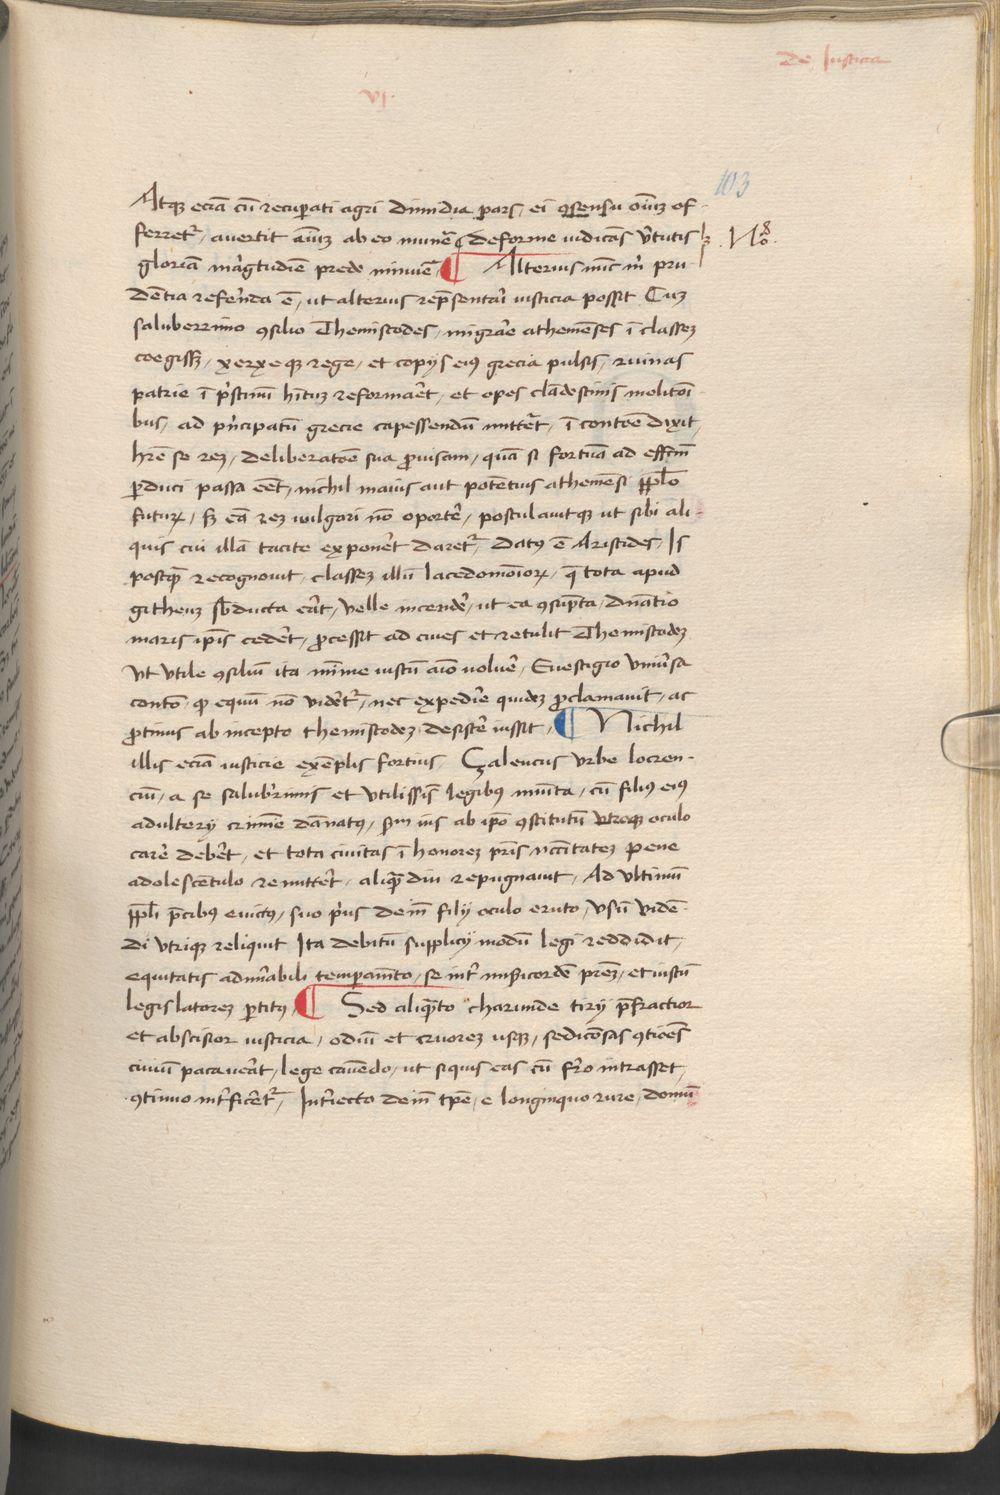 de Justicia
VI.
103
Atqȝ eciā cū recuꝑati agri dimidia pars, ei ꝯsensu oīuȝ of-
ferretᷣ, auertit aīuȝ ab eo munē, deforme iudicās v̓tutis
gloriā mag̓tudiē prede minuē, ¶ Alterius nūc m̄ pru
No.
dētia refer̄da ē, ut alterius rep̄sentari iusticia possit Cuȝ
saluberrimo ꝯsilio Themistocles, migrar̄e athemēses ī classeȝ
coegissȝ, xerxeqȝ rege, et copijs eiꝰ grecia pulsis, ruinas
patrie ī p̓stinū hītuȝ reformar̄et, et opes clādestinis molitōi
bus, ad pn̓cipatū grecie capessendū nutrēt, ī contōe dixit,
hr̄e se reȝ, deliberatōe sua ꝓuisam, quā si fortūa ad effc̄m
ꝑduci passa eēt, nichil maius aut potētius athemēsi ppl̄o
futuꝝ, sȝ eā reȝ uulgari nō oporter̄, postulauitqȝ ut sibi ali-
quis cui illā tacite exponer̄et daretᷣ, datꝰ ē Aristides, Is
postqȝ̄ recognouit, classeȝ illū lacedomōioꝝ, q̄ tota apud
githeuȝ sb̄ducta er̄at, velle incender̄, ut ea ꝯsūpta, dn̄atio
maris ip̄is ceder̄et, ꝓcessit ad ciues et retulit Themistocleȝ
vt vtile ꝯsiliū ita mīme iustū aīo voluer̄, Euestigio vniu̓sa
contō, qꝫ equū nō vider̄etᷣ, nec expedir̄e quideȝ ꝓclamauit, ac
ꝓtinus ab incepto themistocleȝ desister̄e iussit, ¶ Nichil
illis eciā iusticie exēplis fortius Çalencus vrbe locren-
ciū, a se salub̓rimis et vtilissīs legibus munita, cū filiꝰ eiꝰ
adulterij crimīe dānatꝰ, sm̄ ius ab ip̄o ꝯstitutū vtroqȝ oculo
carer̄e deber̄et, et tota ciuitas ī honoreȝ pr̄is nccītateȝ pene
adolescētulo remitter̄et, aliqȝ̄diu repugnauit, Ad vltimū
ppl̄i p̄cibꝰ euictꝰ, suo pri̓us deīn filij oculo eruto, vsū vidē-
di vtriqȝ reliquit Ita debitū supplicij modū legi reddidit,
equitatis adm̓rabili temperamēto, se int̓ mis̓icordē pr̄eȝ, et iustū
legislatoreȝ ꝑtitꝰ, ¶ Sed aliqȝ̄to charunde tirij p̄fractior
et abscisior iusticia, odiū et cruoreȝ usqȝ, sedicōsas ꝯtiōēs
ciuiū pacauer̄at, lege cauēdo, ut siquis eas cū fr̄o intrasset,
ꝯtinuo int̓ficer̄etᷣ, Int̓iecto deīn tp̄e, e longinquo rure, domū